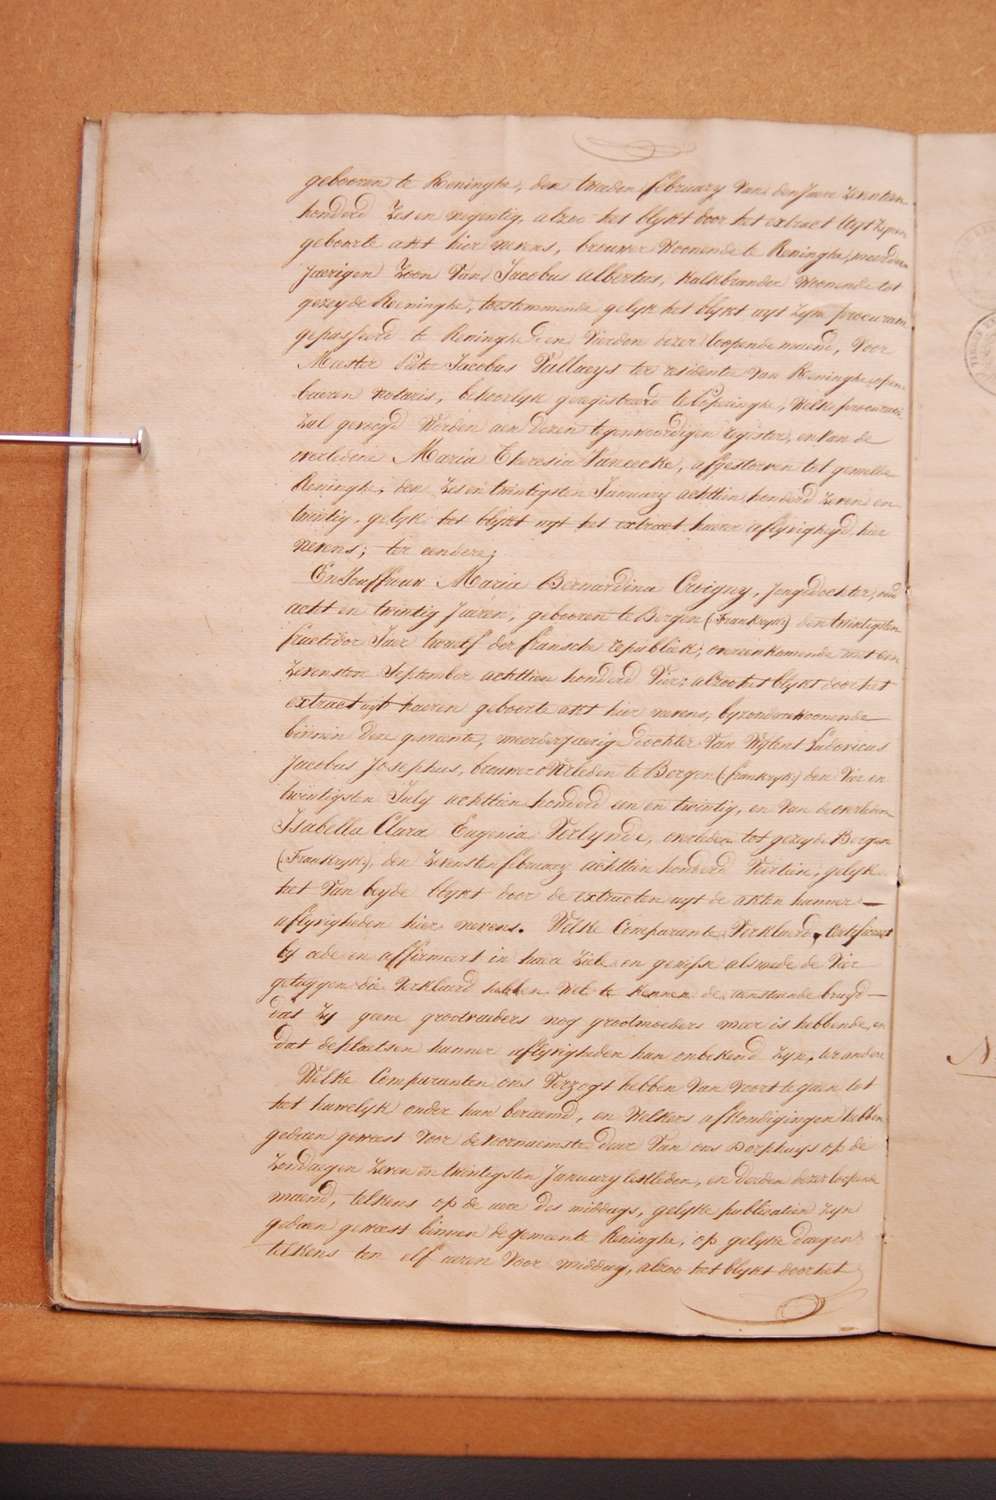 gebooren te Reninghe, den tweeden february van den Jaere zeventien
honderd zes en negentig, alzoo het blykt door het extract uyt zynen
geboorte akt hier nevens, brouwer woonende te Reninghe, meerder
Jaerigen zoon van Jacobus Albertus, kalkbrander woonende tot
gezeyde Reninghe, toestemmende gelyk het blykt uyt zyn procuratie
gepasseerd te Reninghe den vierden dezer loopende maend, voor
Meester Pieter Jacobus Tallueys ter residentie van Reninghe, open-
baeren notaris, behoorlyk geregistreerd te Poperinghe, welke procuratie
zal gevoegd worden aen dezen tegenwoordigen register, en van de
overledene Maria Theresia Vaneecke, afgestorven tot gemelde
Reninghe, den zes en twintigsten January achttien honderd zeven en
twintig, gelyk het blykt uyt het extract haerer aflyvigheyd hier
nevens; ter eendere;
En Jouffrouw Maria Bernardina Cuvigny, Jongedochter, oud
acht en twintig Jaeren, gebooren te Bergen (Frankryk) den twintigsten
fructidor Jaer twaelf der fransche republiek, overeenkomende met den
zevensten September achttien honderd vier; alzoo het blykt door het
extract uyt haeren geboorte akt hier nevens, byzondere woonende
binnen deze gemeente, meerderjaerige dochter van wylent Ludovicus
Jacobus Josephus, brouwer overleden te Bergen (frankryk) den vier en
twintigsten July achttien honderd een en twintig, en van de overledene
Isabella Clara Eugenia Verlynde, overleden tot gezeyde Bergen
(Frankryk), den zevensten february achttien honderd veertien, gelyk
het van beyde blykt door de extracten uyt de akten hunner
aflyvigheden hier nevens. Welke Comparante verklaerd, Certificeert
by eede en affirmeert in haere ziele en gewisse alsmede de vier
getuygen die verklaerd hebben wel te kennen de aenstaende bruyd
dat zy geene grootvaders nog grootmoeders meer is hebbende, en
dat de plaetsen hunner aflyvigheden hun onbekend zyn, ter andere
Welke Comparanten ons verzogt hebben van voort te gaen tot
het huwelyk onder hun beraemd, en welkers afkondigingen hebben
gedaen geweest voor de voornaemste deur van ons Dorphuys op de
Zondaegen zeven en twintigsten January lestleden, en derden dezer loopende
maend, telkens op de uere des middags, gelyke publicatien zyn
gedaen geweest binnen de gemeente Reninghe, op gelyke daegen
telkens ten elf ueren voor middag, alzoo het blykt door het